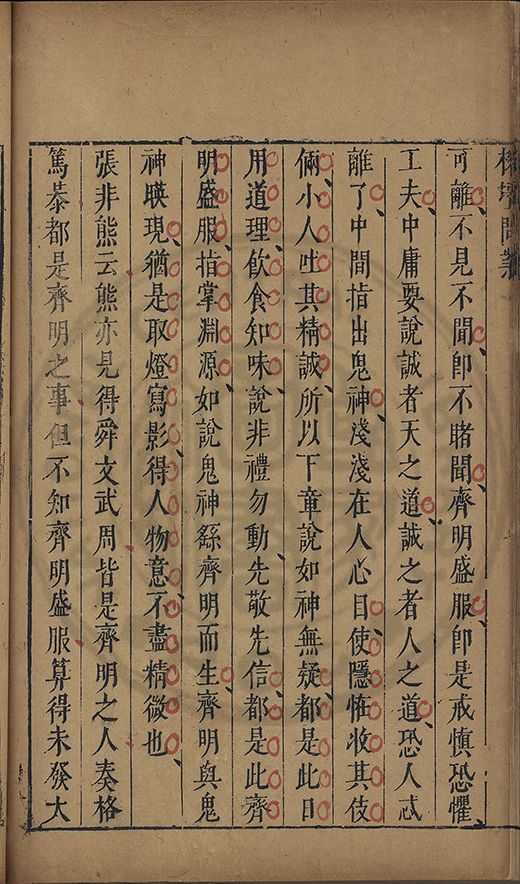 榕壇問業
可離不見不聞卽不睹聞齊明盛服卽是戒慎恐懼
工夫中庸要說誠者天之道誠之者人之道恐人忒
離了中間指出鬼神淺淺在人心目使隱恠收其伎
倆小人吐其精誠所以下章說如神無疑都是此日
用道理飲食知味說非禮勿動先敬先信都是此齊
明盛服指掌淵源如說鬼神繇齊明而生齊明與鬼
神暎現猶是取燈寫影得人物意不盡精微也
張非熊云熊亦見得舜文武周皆是齊明之人奏格
篤恭都是齊明之事但不知齊明盛服算得未發大